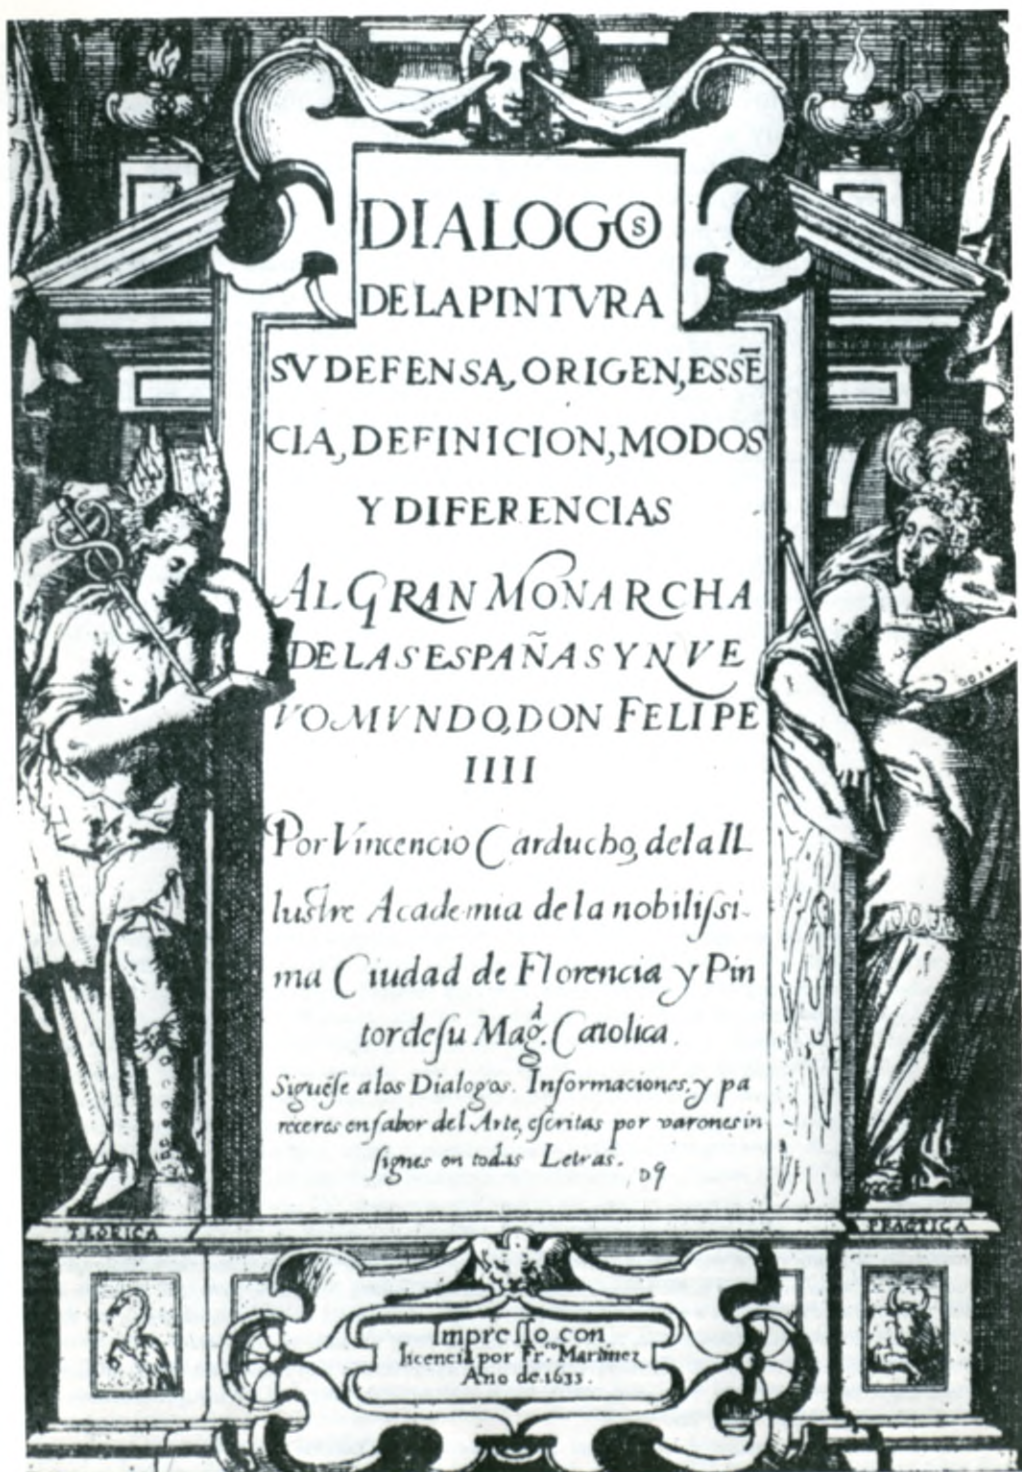 DIALOGOS
DE LA PINTVRA
SV DEFENSA, ORIGEN, ESSẼ
CIA, DEFINICION, MODOS
Y DIFERENCIAS
AL GRAN MONARCHA
DE LAS ESPAÑAS Y NVE
VO MVNDO, DON FELIPE
IIII
Por Vincencio Carducho, de la Il
lustre Academia de la nobiliſsi-
ma Ciudad de Florencia y Pin
tor de ſu Mag.ᵈ Catolica.
Siguẽſe a los Dialogos. Informaciones, y pa
receres en fabor del Arte, eſcritas por varones in
ſignes en todas Letras.
TEORICA
PRACTICA
Impreſſo con
licencia por Fr.ᶜᵒ Martinez
Año de 1633.